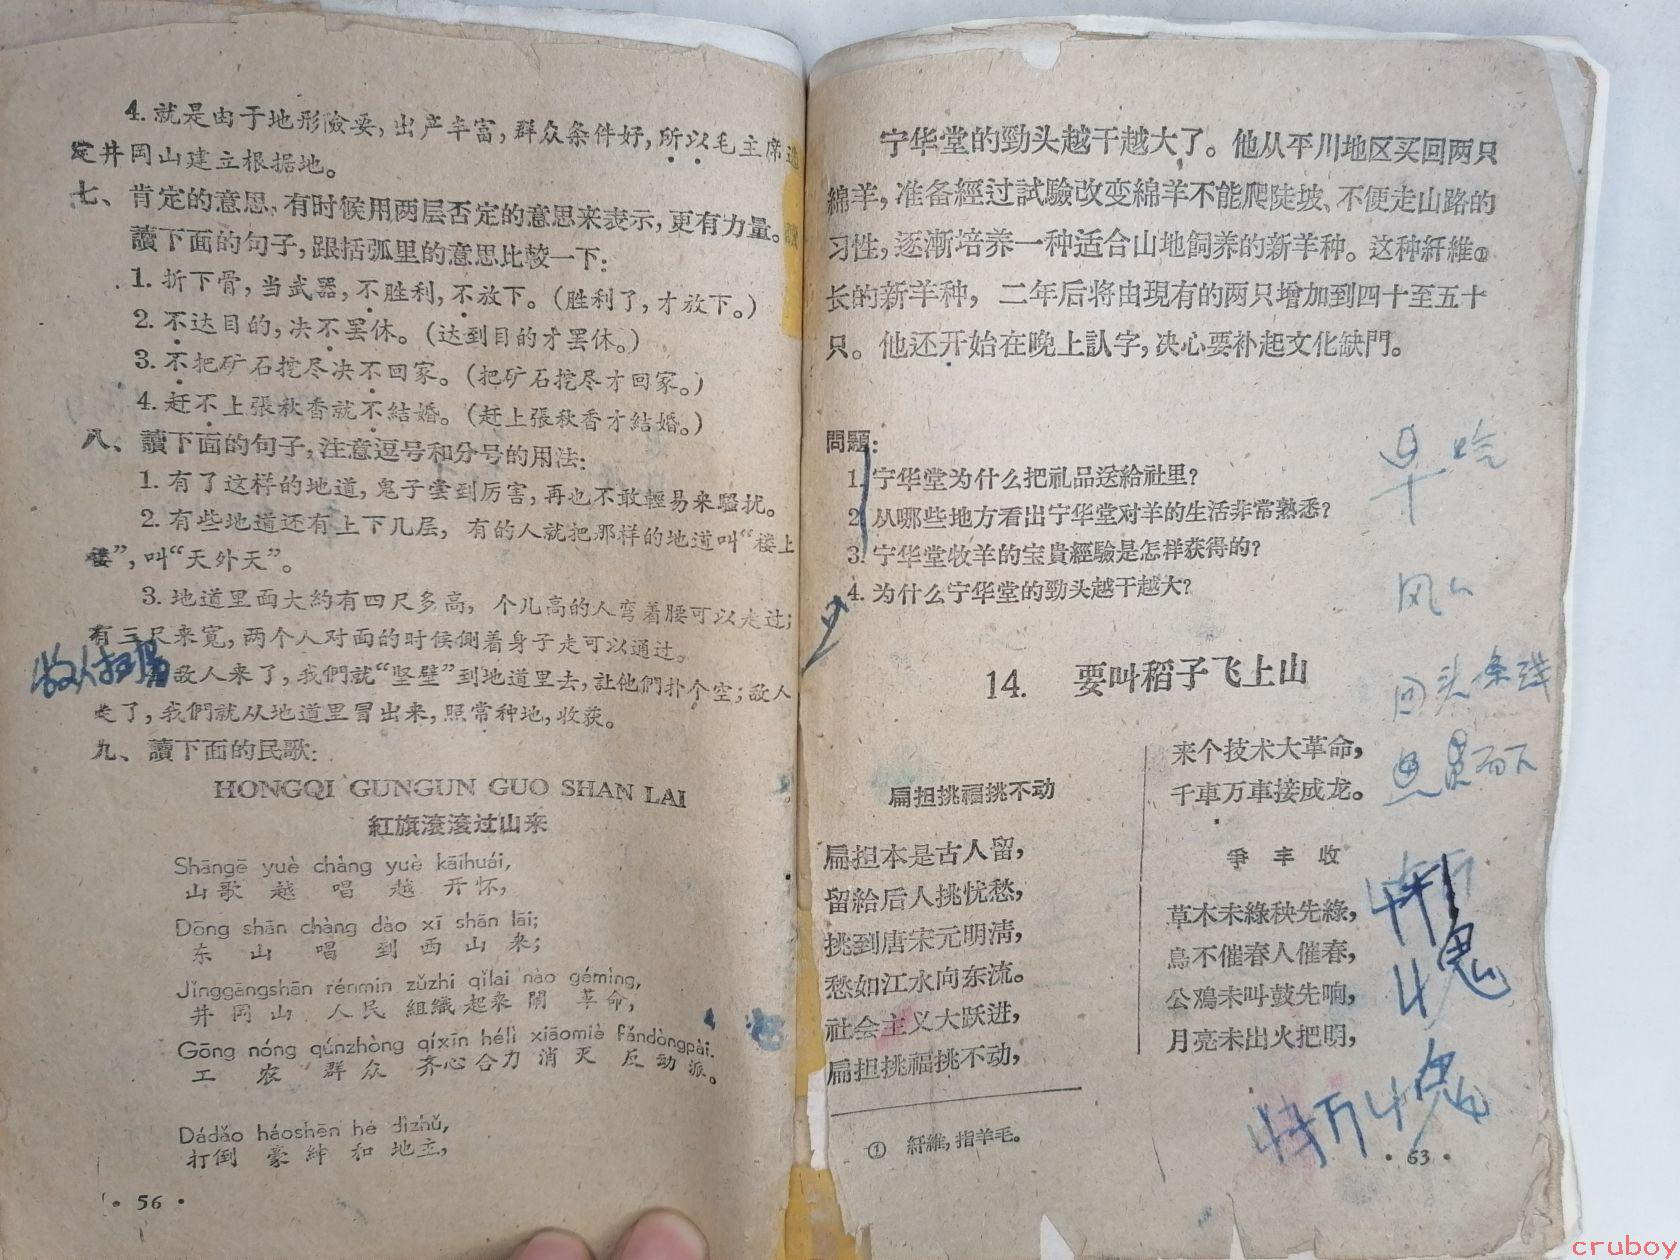 4. 就是由于地形險要，出产丰富，群众条件好，所以毛主席选
定井岡山建立根据地。
七、肯定的意思，有时候用两层否定的意思来表示，更有力量。
讀下面的句子，跟括弧里的意思比較一下：
1. 折下骨，当武器，不胜利，不放下。（胜利了，才放下。）
2. 不达目的，决不罢休。（达到目的才罢休。）
3. 不把矿石挖尽决不回家。（把矿石挖尽才回家。）
4. 赶不上張秋香就不結婚。（赶上張秋香才結婚。）
八、讀下面的句子，注意逗号和分号的用法：
1. 有了这样的地道，鬼子尝到厉害，再也不敢輕易来騷扰。
2. 有些地道还有上下几层，有的人就把那样的地道叫“楼上
楼”，叫“天外天”。
3. 地道里面大約有四尺多高，个儿高的人弯着腰可以走过；
有三尺来寬，两个人对面的时候側着身子走可以通过。
敌人来了，我們就“坚壁”到地道里去，让他們扑个空；敌人
走了，我們就从地道里冒出来，照常种地，收获。
九、讀下面的民歌：
HONGQI GUNGUN GUO SHAN LAI
紅旗滾滾过山来
Shāngē yuè chàng yuè kāihuái,
山歌 越 唱 越 开怀，
Dōng shān chàng dào xī shān lāi;
东 山 唱 到 西 山 来；
Jǐnggāngshān rénmin zǔzhi qǐlai nào gémìng,
井 岡 山 人民 組織 起来 鬧 革命，
Gōng nóng qúnzhòng qíxīn hélì xiāomiè fǎndòngpài.
工 农 群众 齐心合力 消灭 反动派。
Dádǎo háoshēn hé dìzhǔ,
打倒 豪紳 和 地主，
· 56 ·
宁华堂的勁头越干越大了。他从平川地区买回两只
綿羊，准备經过試驗改变綿羊不能爬陡坡、不便走山路的
习性，逐漸培养一种适合山地飼养的新羊种。这种紆維①
长的新羊种，二年后将由現有的两只增加到四十至五十
只。他还开始在晚上認字，决心要补起文化缺門。
問題：
1. 宁华堂为什么把礼品送給社里？
2. 从哪些地方看出宁华堂对羊的生活非常熟悉？
3. 宁华堂牧羊的宝貴經驗是怎样获得的？
4. 为什么宁华堂的勁头越干越大？
14. 要叫稻子飞上山
扁担挑福挑不动
扁担本是古人留，
留給后人挑忧愁，
挑到唐宋元明清，
愁如江水向东流。
社会主义大跃进，
扁担挑福挑不动，
来个技术大革命，
千車万車接成龙。
爭丰收
草木未綠秧先綠，
鳥不催春人催春，
公鴉未叫鼓先响，
月亮未出火把明，
① 紆維，指羊毛。
· 63 ·